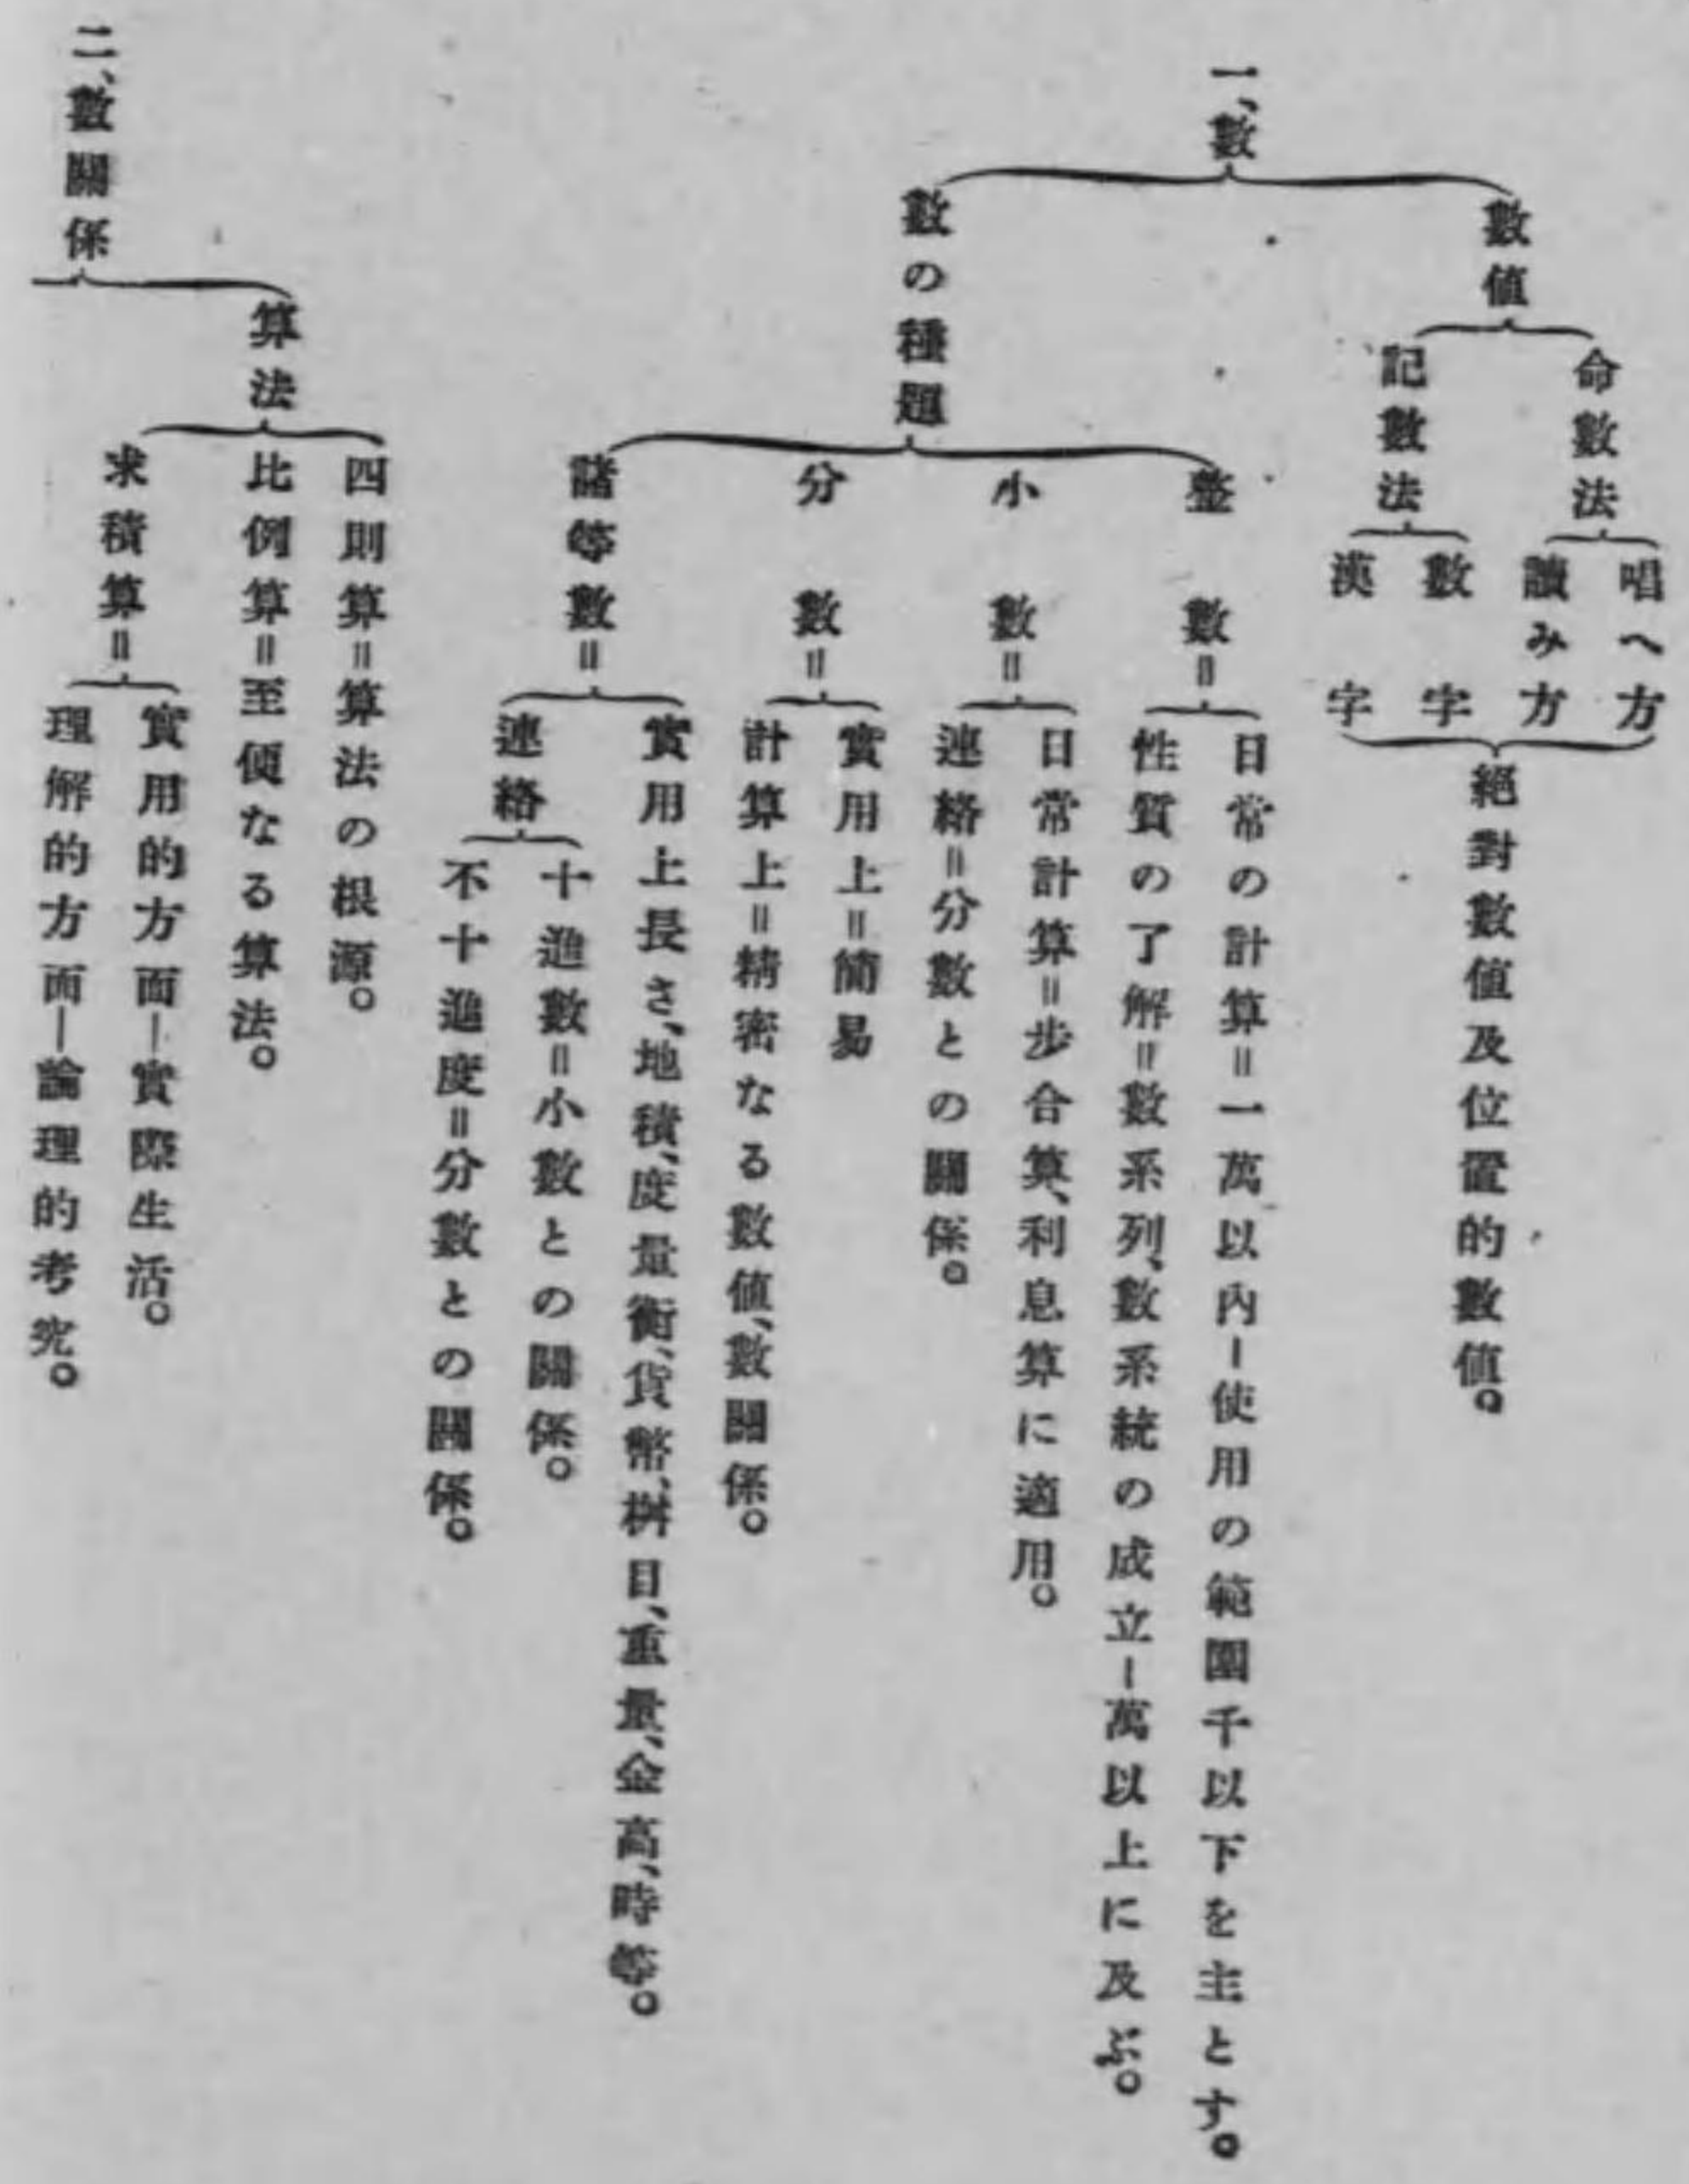 一、數
數値
命數法
唱へ方
讀み方
記數法
數字
漢字
絕對數値及位置的數値。
數の種類
整數＝
日常の計算＝一萬以內―使用の範圍千以下を主とす。
性質の了解＝數系列、數系統の成立―萬以上に及ぶ。
小數＝
日常計算＝步合算、利息算に適用。
連絡＝分數との關係。
分數＝
實用上＝簡易
計算上＝精密なる數値、數關係。
諸等數＝
實用上長さ、地積、度量衡、貨幣、桝目、重量、金高、時等。
連絡
十進數＝小數との關係。
不十進度＝分數との關係。
二、數關係
算法
四則算＝算法の根源。
比例算＝至便なる算法。
求積算＝
實用的方面―實際生活。
理解的方面―論理的考究。